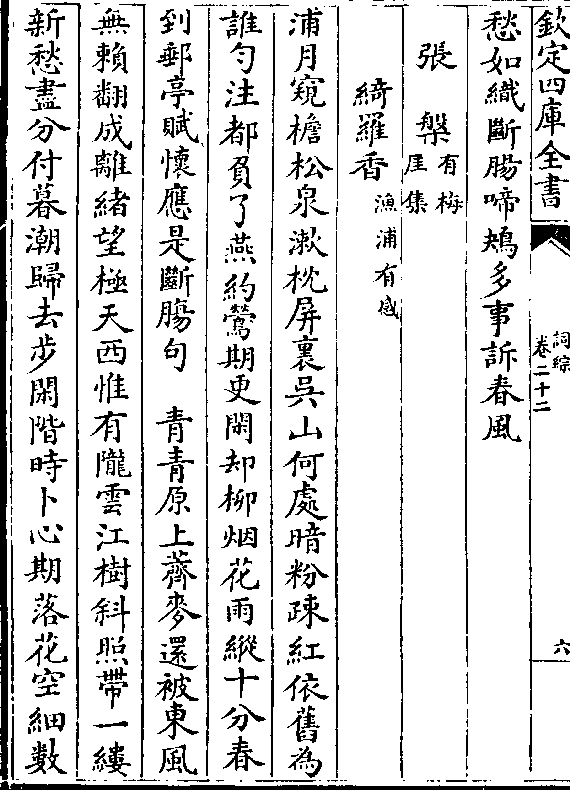 欽定四庫全書
詞綜
卷二十二
六
愁如織斷腸啼鴂多事訴春風
張槃有梅
厓集
綺羅香漁浦有感
浦月窺檐松泉漱枕屏裏吳山何處暗粉疎紅依舊為
誰勻注都負了燕約鶯期更閑却柳烟花雨縱十分春
到郵亭賦懷應是斷腸句　青青原上薺麥還被東風
無賴翻成離緒望極天西惟有隴雲江樹斜照帶一縷
新愁盡分付暮潮歸去步閑階時卜心期落花空細數